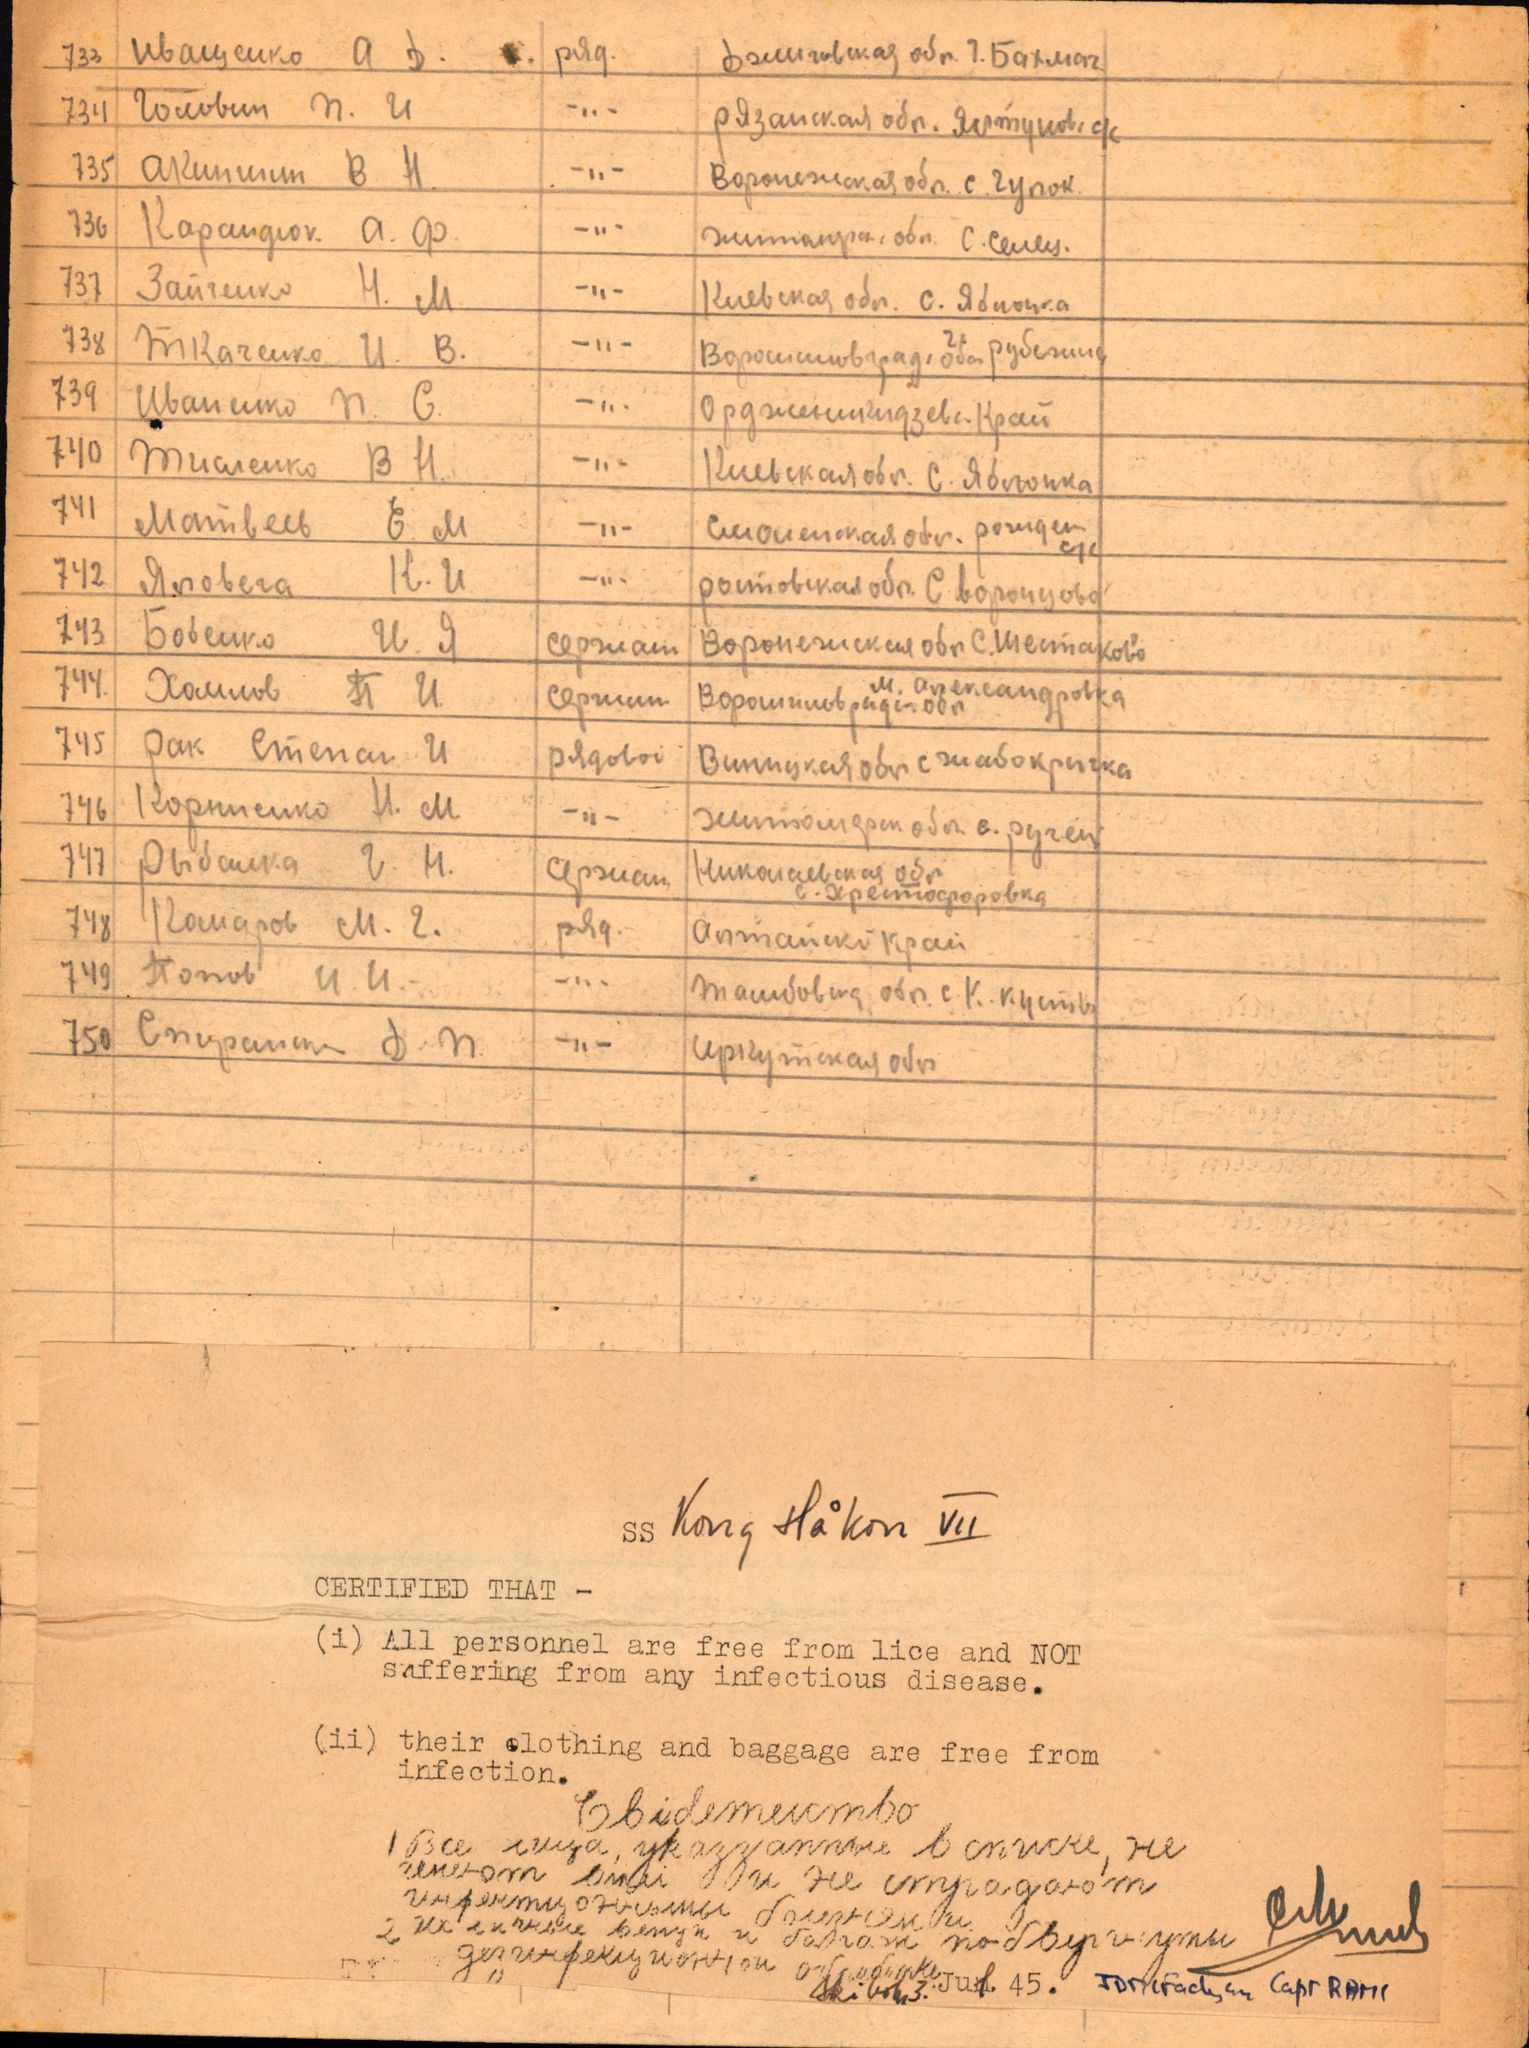 733 Иващенко А Д. ряд. Джиговская обл. г. Бахмач
734 Головин П. И -"- Рязанская обл.
735 Акинин В Н. -"- Воронежская обл. с.
736 Карандюк. А. Ф. -"- обл. С. Селец.
737 Зайченко Н. М -"- Киевская обл. с. Яблонка
738 Ткаченко И. В. -"- Ворошиловград. обл г. рубежная
739 Иваненко П. С. -"- Орджени кидзевс. Край
740 В Н. -"- Киевская обл. С. Яблонка
741 Матвеев Е. М -"- Смоленская обл.
742 Яловега К. И -"- ростовская обл. С Воронцово
743 Бовенко И. Я сержант Воронежская обл С. Шестаково
744. П И сержант Ворошиловградск обл м. Александровка
745 Рак Степан И рядовой Виницкая обл с жабокричка
746 Корниенко И. М. -"- житомирск обл. с.
747 Рыбалка Г. Н. сержан Николаевская обл
с. Христофоровка
748 Комаров М. Г. ряд. Алтайский край
749 Попов И. И. -"- Тамбовска обл. с
750 Д. П. -"- Иркутская обл
SS Kong Håkon VII
CERTIFIED THAT -
(i) All personnel are free from lice and NOT
suffering from any infectious disease.
(ii) their clothing and baggage are free from
infection.
Свiдетелство
1 Все лица, указанные в списке, не
имеют вшей и не страдают
инфекционными болезнями
2 Их личные вещи и багаж подвергнуты
дезинфекционной обработке
3. Jul 45. Capt RAMC